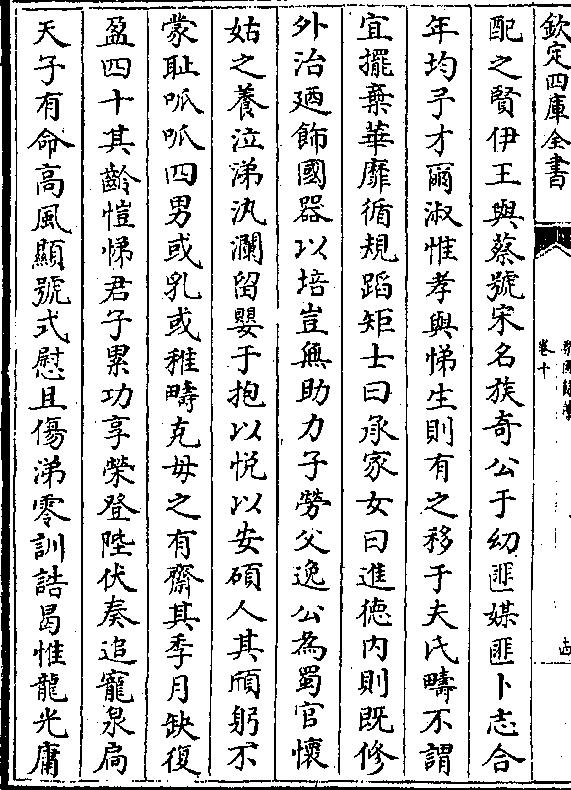 欽定四庫全書
卷十
配之賢伊王與蔡號宋名族奇公于幼匪媒匪卜志合
年均予才爾淑惟孝與悌生則有之移于夫氏疇不謂
宜擺棄華靡循規蹈矩士曰承家女曰進德内則既修
外治廼飾國器以培豈無助力子勞父逸公為蜀官懷
姑之養泣涕汍瀾留嬰于抱以悦以安碩人其頎躬不
蒙恥呱呱四男或乳或稚疇克毋之有齋其季月缺復
盈四十其齡愷悌君子累功享榮登陛伏奏追寵泉扃
天子有命高風顯號式慰且傷涕零訓誥曷惟龍光庸